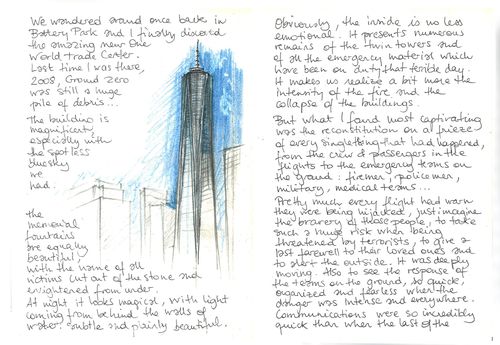 We wandered around once back in
Battery Park and I finally discovered
the amazing new One
World Trade Center.
Last time I was there,
2008, Ground Zero
was still a huge
pile of debris...
The building is
magnificent,
especially with
the spotless
blue sky
we
had.
the
memorial
fountains
are equally
beautiful
with the name of all
victims cut out of the stone and
enlightened from under.
At night it looks magical, with light
coming from behind the walls of
water. Subtle and plainly beautiful.
Obviously, the inside is no less
emotional. It presents numerous
remains of the twin towers and
of all the emergency material which
have been on duty that terrible day.
It makes us realize a bit more the
intensity of the fire and the
collapse of the buildings.
But what I found most captivating
was the reconstitution on a frieze
of every single thing that had happened,
from the crew & passengers in the
flights to the emergency teams on
the ground: firemen, policemen,
military, medical teams...
Pretty much every flight had warn
they were being hijacked, just imagine
the bravery of those people, to take
such a huge risk when being
threatened by terrorists, to give a
last farewell to their loved ones and
to alert the outside. It was deeply
moving. Also to see the response of
the teams on the ground, so quick,
organized and fearless when the
danger was intense and everywhere.
Communications were so incredibly
quick than when the last of the